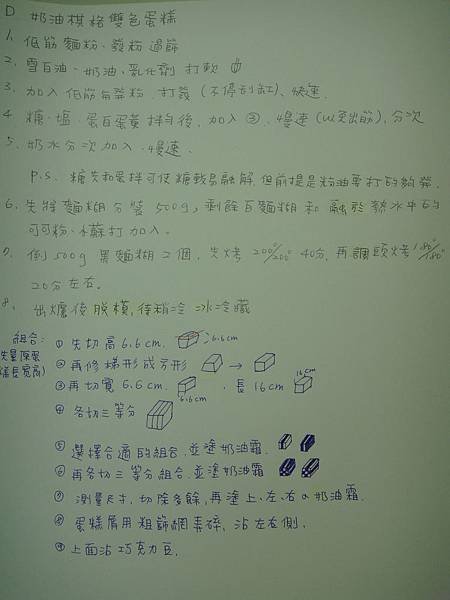 D 奶油棋格雙色蛋糕
1. 低筋麵粉、發粉過篩
2. 雪白油、奶油、乳化劑 打軟
3. 加入低筋与發粉 打發 (不停刮缸)、快速.
4. 糖、塩、蛋白蛋黃拌匀後, 加入③, 慢速(以免出筋), 分次
5. 奶水分次加入. 慢速.
P.S. 糖先和蛋拌可使糖較易融解, 但前提是粉油要打的夠發.
6. 先將麵糊分裝500g, 剩餘白麵糊和融於熱水中的
可可粉、小蘇打加入.
7. 倒500g黑麵糊2個, 先烤200°/200° 40分, 再調頭烤180°/180°
20分左右.
8. 出爐後脫模, 待稍冷 冰冷藏
組合:
(先量原蛋
糕長寬高)
① 先切高6.6cm. 6.6cm
② 再修梯形成方形 →
③ 再切寬6.6cm. 6.6cm 、長16cm 16cm
④ 各切三等分
⑤ 選擇合適的組合. 並塗奶油霜
⑥ 再各切三等分組合. 並塗奶油霜
⑦ 測量尺寸, 切除多餘, 再塗上、左、右の奶油霜.
⑧ 蛋糕屑用粗篩網弄碎, 沾左右側.
⑨ 上面沾巧克力豆.